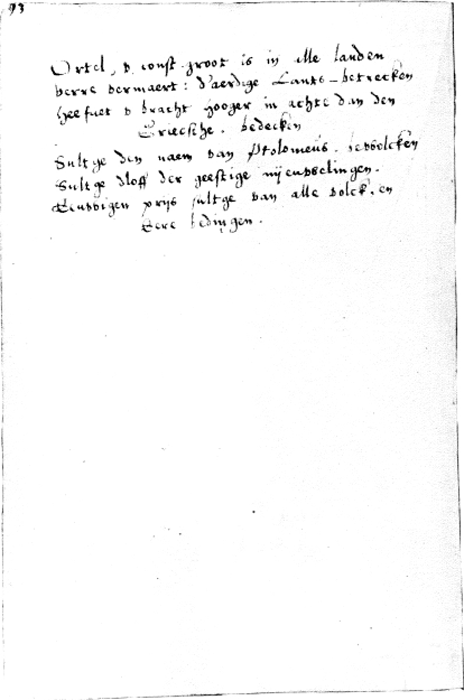 93
Ortel, v const groot is in alle landen
verre vermaert: d'aerdige Lants-betrecken
heefuet v bracht hooger in achte dan den
Griecsche. bedecken
Sult ge den naem van Ptolomeus. bevolcken
Sult ge dloff der geestige nijeuvelingen.
Eeuwigen prijs sult ge van alle volck, en
Eere bedingen.